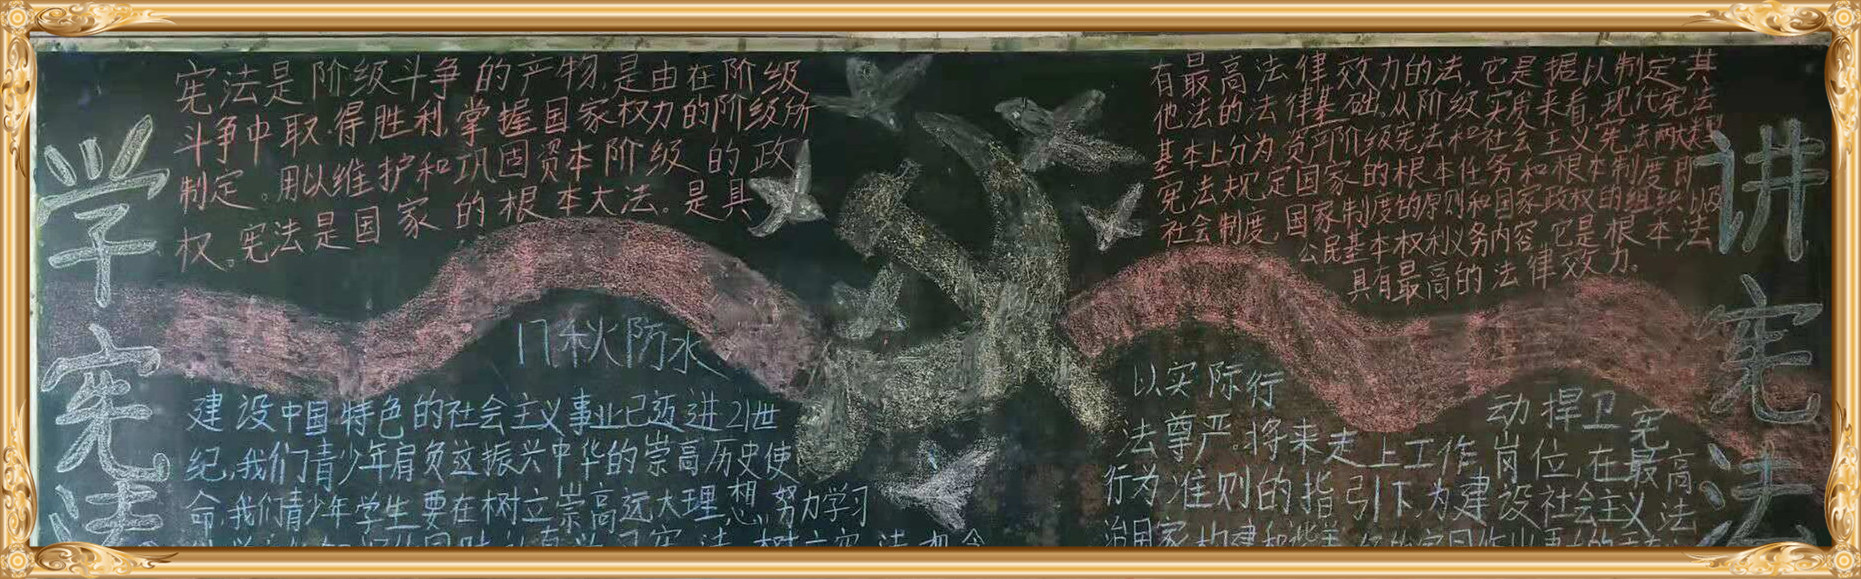 学宪法
宪法是阶级斗争的产物,是由在阶级
斗争中取得胜利掌握国家权力的阶级所
制定。用以维护和巩固资本阶级的政
权。宪法是国家的根本大法。是具
有最高法律效力的法,它是据以制定其
他法的法律基础。从阶级实质来看,现代宪法
基本上分为资产阶级宪法和社会主义宪法两大类型
宪法规定国家的根本任务和根本制度即
社会制度,国家制度的原则和国家政权的组织以及
公民基本权利义务内容,它是根本法
具有最高的法律效力。
防水
建设中国特色的社会主义事业已迈进21世
纪,我们青少年肩负这振兴中华的崇高历史使
命,我们青少年学生要在树立崇高远大理想,努力学习
以实际行
动捍卫宪
法尊严。将来走上工作岗位,在最高
行为准则的指引下,为建设社会主义法
讲宪法